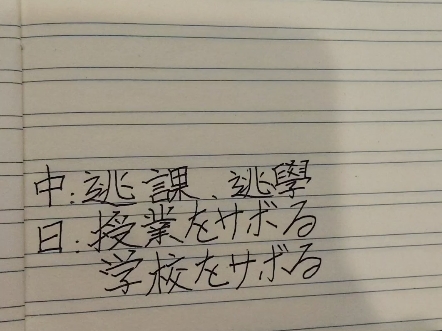 中:逃課、逃學
日:授業をサボる
学校をサボる